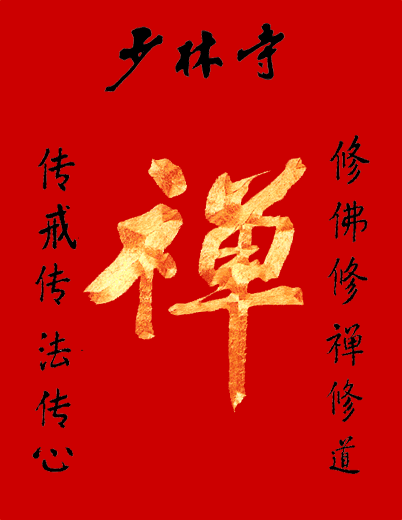 少林寺
修佛修禅修道
禅
传戒传法传心